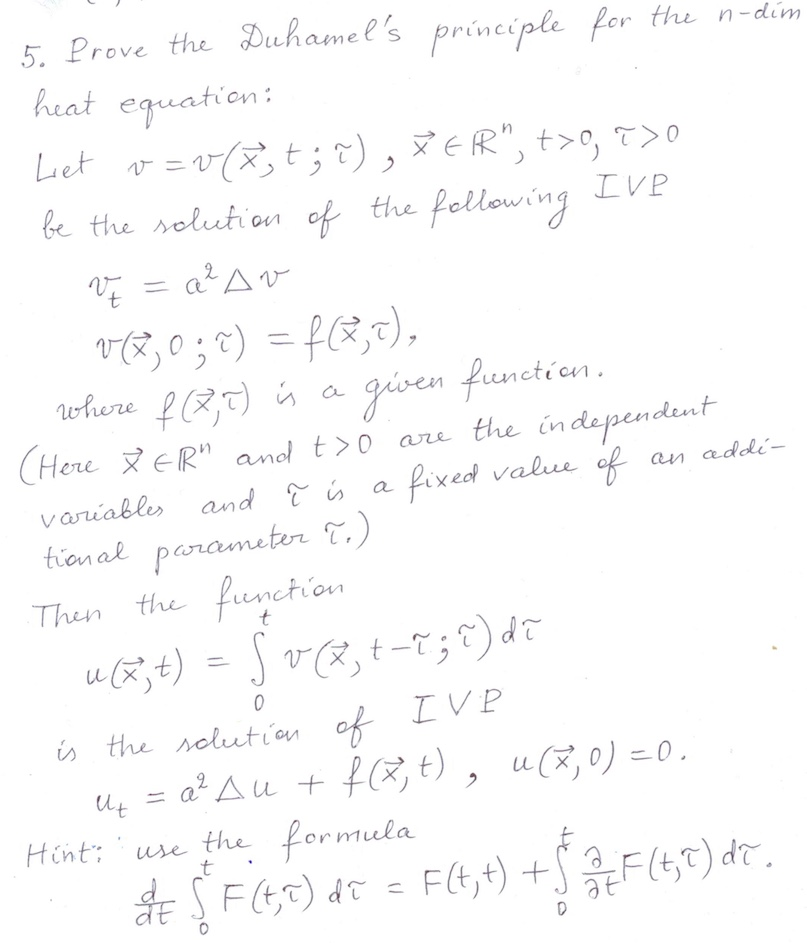 5. Prove the Duhamel's principle for the n-dim
heat equation:
Let v = v(x⃗, t; τ), x⃗ ∈ ℝⁿ, t>0, τ>0
be the solution of the following IVP
v_t = a² Δ v
v(x⃗, 0; τ) = f(x⃗, τ),
where f(x⃗, τ) is a given function.
(Here x⃗ ∈ ℝⁿ and t>0 are the independent
variables and τ is a fixed value of an addi-
tional parameter τ.)
Then the function
u(x⃗, t) = ∫₀ᵗ v(x⃗, t-τ; τ) dτ
is the solution of IVP
u_t = a² Δu + f(x⃗, t), u(x⃗, 0) = 0.
Hint: use the formula
d/dt ∫₀ᵗ F(t, τ) dτ = F(t, t) + ∫₀ᵗ ∂/∂t F(t, τ) dτ.